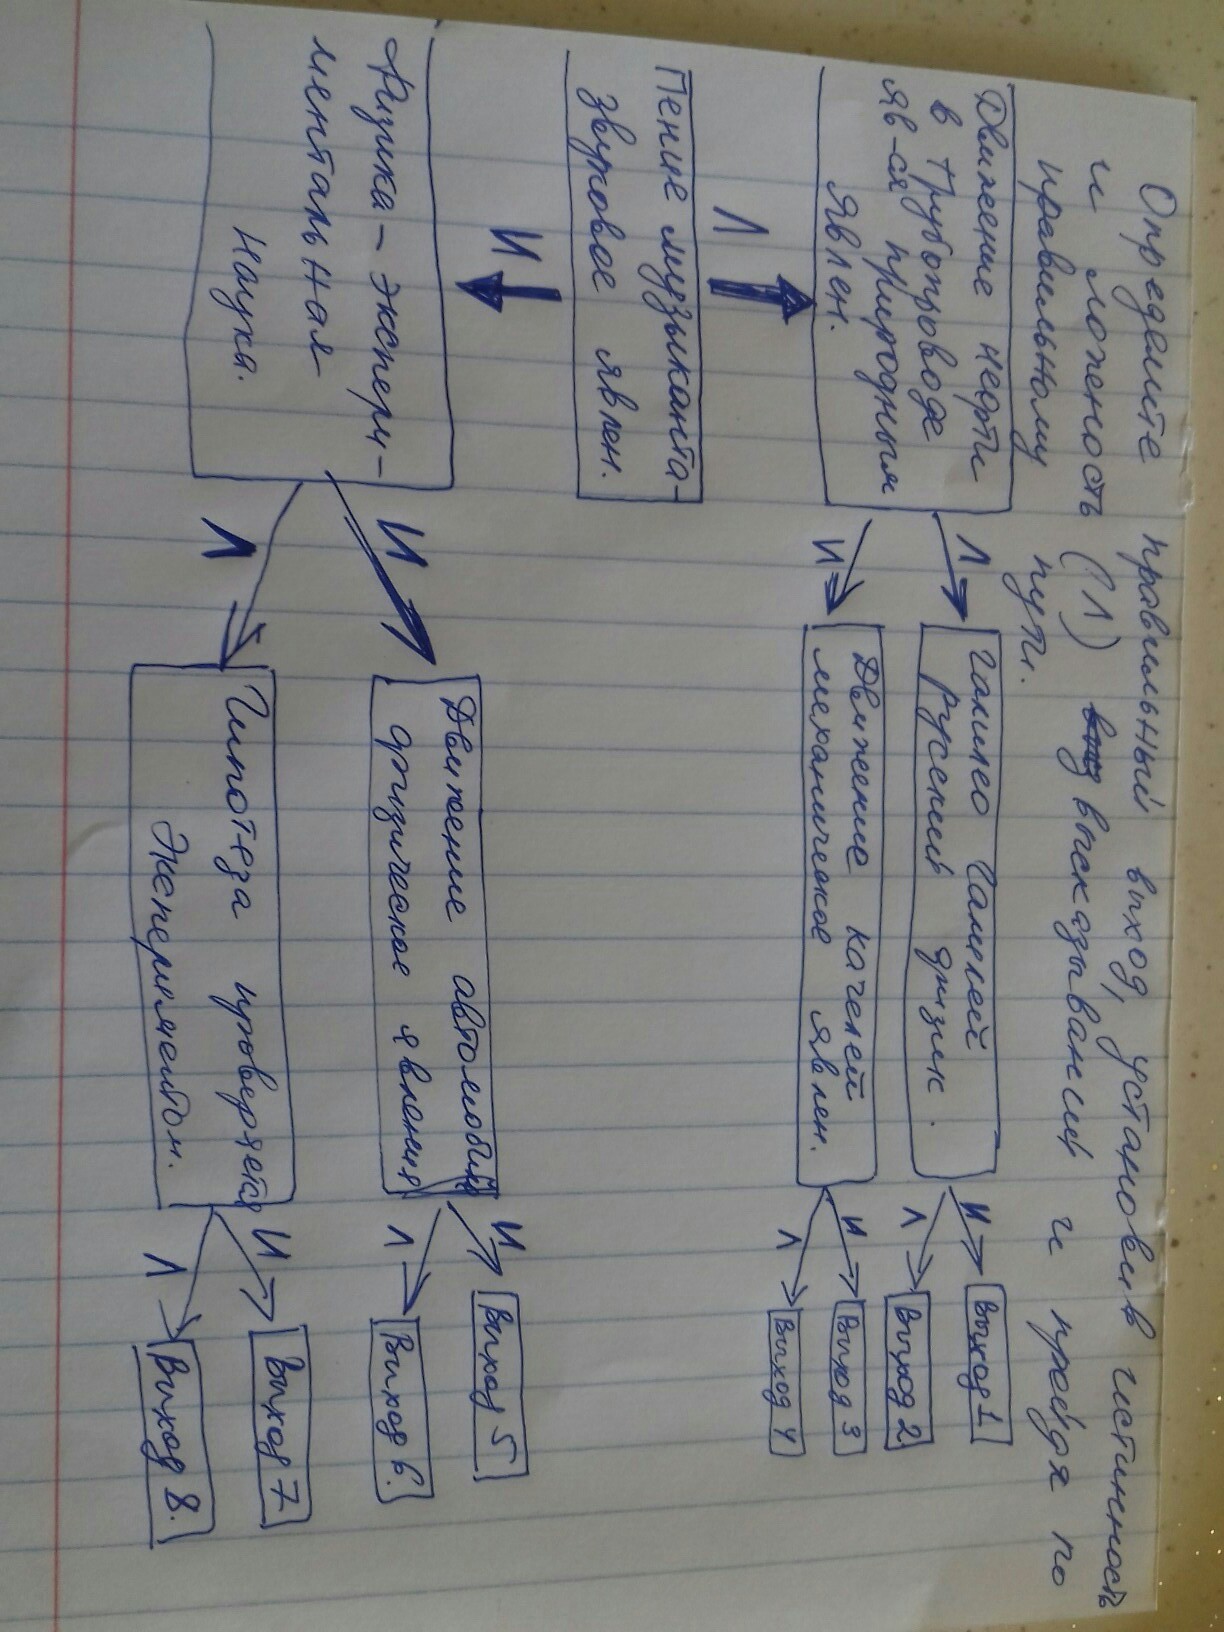 Определите правильный выход, установив истинность
и ложность (Л) высказываний и пройдя по
правильному пути.
Движение нефти
в трубопроводе
яв-ся природным
явлен.
Л
И
Галилео Галилей
русский физик.
И
Л
Выход 1
Выход 2
Движение качелей
механическое явлен.
И
Л
Выход 3
Выход 4
Л
Пение музыканта-
звуковое явлен.
И
Физика - экспери-
ментальная
наука.
И
Л
Движение автомобиля
физическое явления
И
Л
Выход 5
Выход 6.
Гипотеза проверяется
экспериментом.
И
Л
Выход 7
Выход 8.